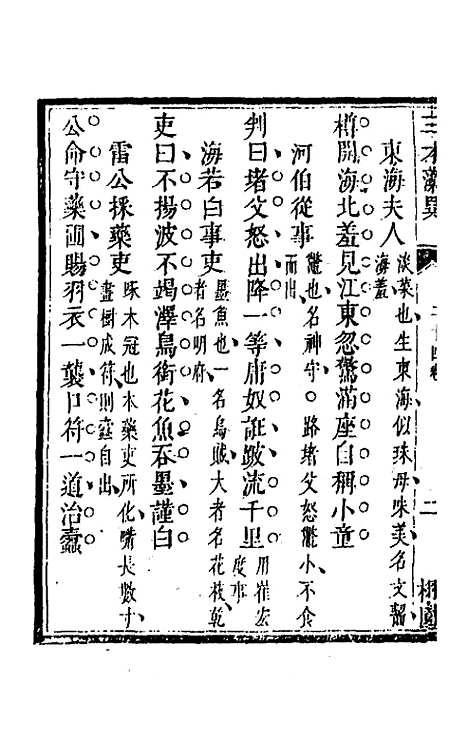 東海夫人 淡菜也生東海似珠母味美名文𧉧
海蓋
樽開海北羞見江東忽驚滿座自稱小童
河伯從事 鼈也名神守○路堵父怒鼈小不食
而出
判曰堵父怒出降一等庸奴誑跛流千里 用崔宏
度事
海若白事吏 墨魚也一名烏賊大者名花枝乾
者名明府
吏曰不揚波不竭澤鳥銜花魚吞墨謹白
雷公採藥吏 啄木冠也本藥吏所化嘴長數寸
畫樹成符則蠧自出
公命守藥圃賜羽衣一襲卩符一道治蠹
二十四卷
二